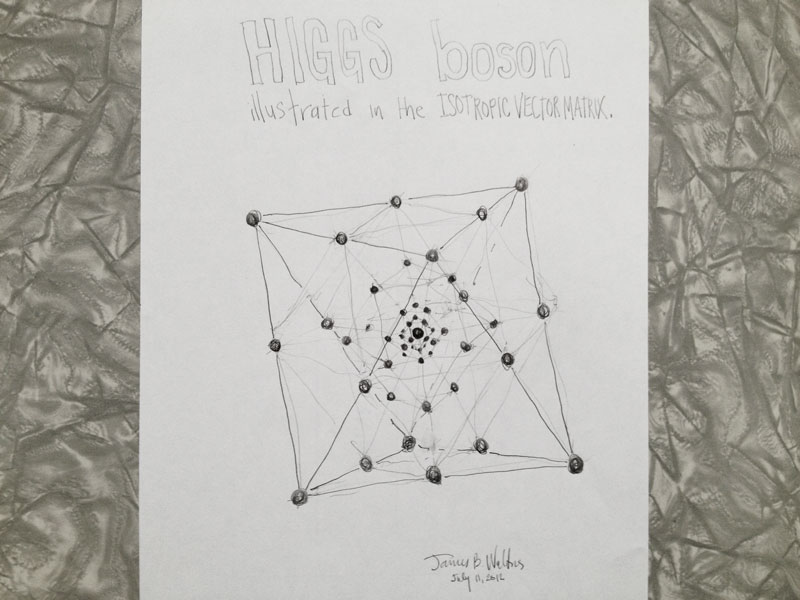 HIGGS boson
illustrated in the ISOTROPIC VECTOR MATRIX.
James B
July 11, 2012